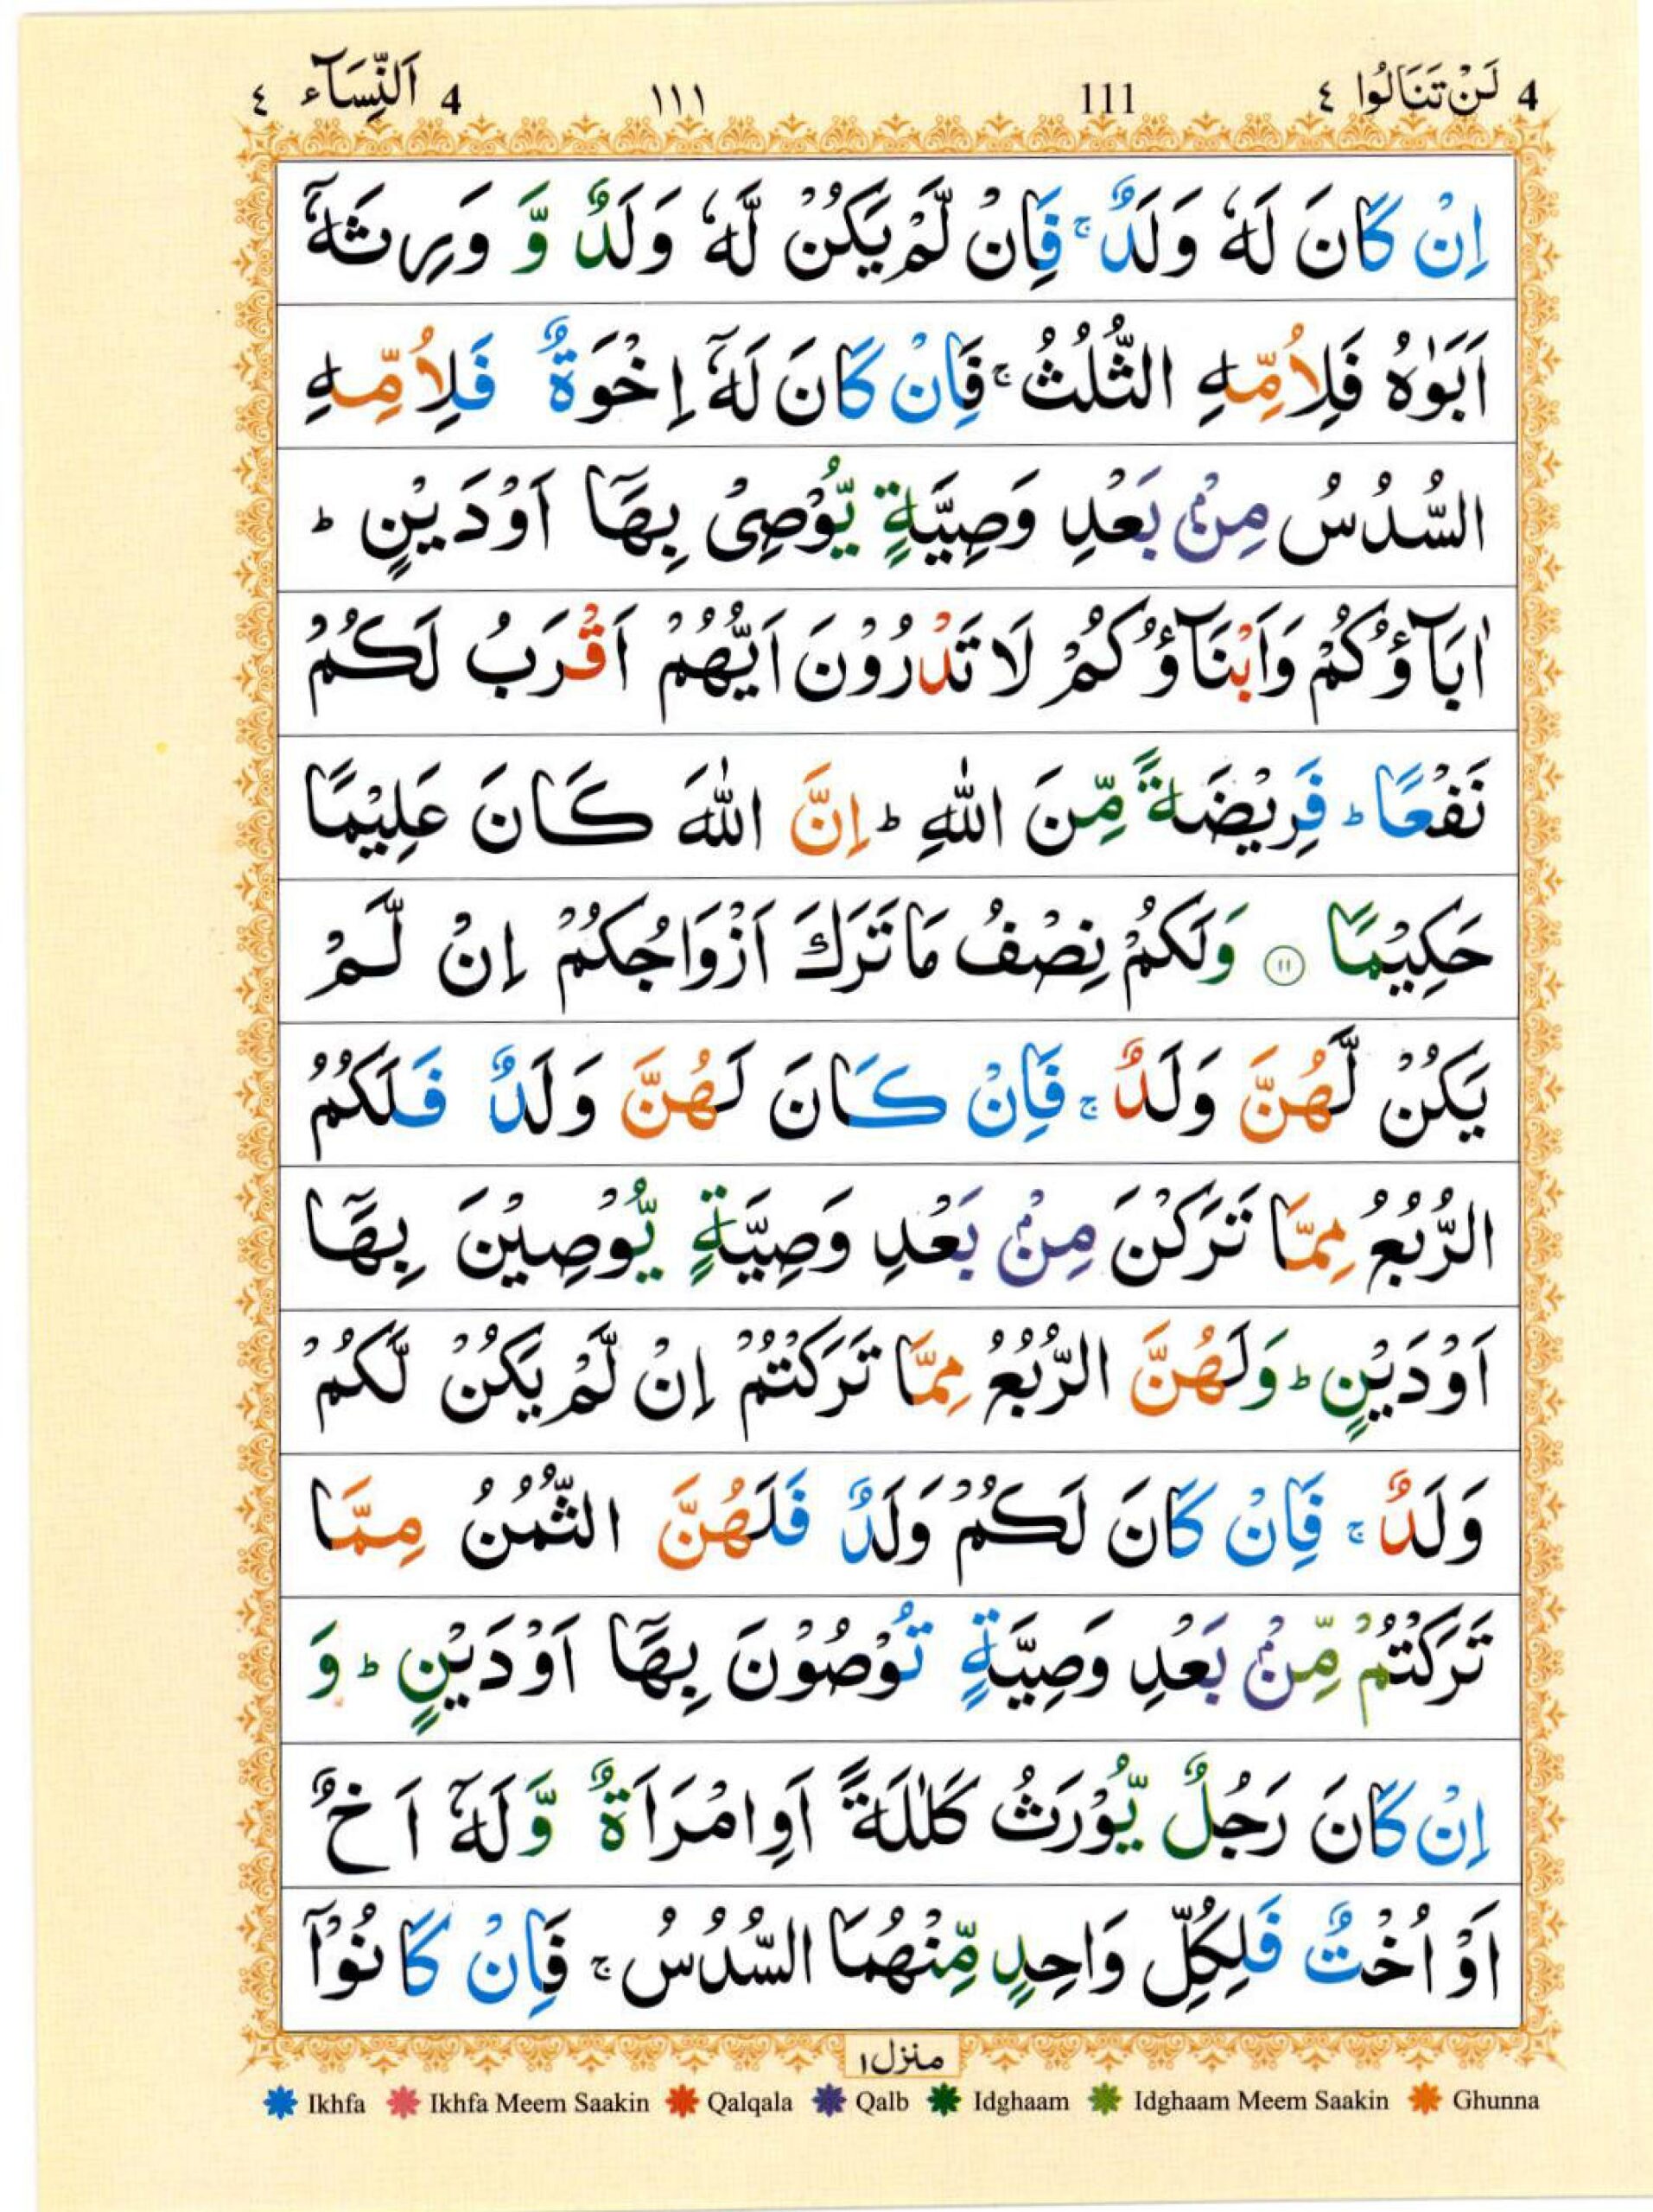 4 لَنْ تَنَالُوا ٤ 111 ١١١ 4 اَلنِّسَآء ٤
اِنْ كَانَ لَهٗ وَلَدٌ ۚ فَاِنْ لَّمْ يَكُنْ لَّهٗ وَلَدٌ وَّ وَرِثَهٗۤ
اَبَوٰهُ فَلِاُمِّهِ الثُّلُثُ ۚ فَاِنْ كَانَ لَهٗۤ اِخْوَةٌ فَلِاُمِّهِ
السُّدُسُ مِنْۢ بَعْدِ وَصِيَّةٍ يُّوْصِیْ بِهَاۤ اَوْ دَيْنٍ ؕ
اٰبَآؤُكُمْ وَاَبْنَآؤُكُمْ لَا تَدْرُوْنَ اَيُّهُمْ اَقْرَبُ لَكُمْ
نَفْعًا ؕ فَرِيْضَةً مِّنَ اللّٰهِ ؕ اِنَّ اللّٰهَ كَانَ عَلِيْمًا
حَكِيْمًا ۝۱۱ وَلَكُمْ نِصْفُ مَا تَرَكَ اَزْوَاجُكُمْ اِنْ لَّمْ
يَكُنْ لَّهُنَّ وَلَدٌ ۚ فَاِنْ كَانَ لَهُنَّ وَلَدٌ فَلَكُمُ
الرُّبُعُ مِمَّا تَرَكْنَ مِنْۢ بَعْدِ وَصِيَّةٍ يُّوْصِيْنَ بِهَاۤ
اَوْ دَيْنٍ ؕ وَلَهُنَّ الرُّبُعُ مِمَّا تَرَكْتُمْ اِنْ لَّمْ يَكُنْ لَّكُمْ
وَلَدٌ ۚ فَاِنْ كَانَ لَكُمْ وَلَدٌ فَلَهُنَّ الثُّمُنُ مِمَّا
تَرَكْتُمْ مِّنْۢ بَعْدِ وَصِيَّةٍ تُوْصُوْنَ بِهَاۤ اَوْ دَيْنٍ ؕ وَ
اِنْ كَانَ رَجُلٌ يُّوْرَثُ كَلٰلَةً اَوِ امْرَاَةٌ وَّلَهٗۤ اَخٌ
اَوْ اُخْتٌ فَلِكُلِّ وَاحِدٍ مِّنْهُمَا السُّدُسُ ۚ فَاِنْ كَانُوْۤا
منزل ١
Ikhfa Ikhfa Meem Saakin Qalqala Qalb Idghaam Idghaam Meem Saakin Ghunna